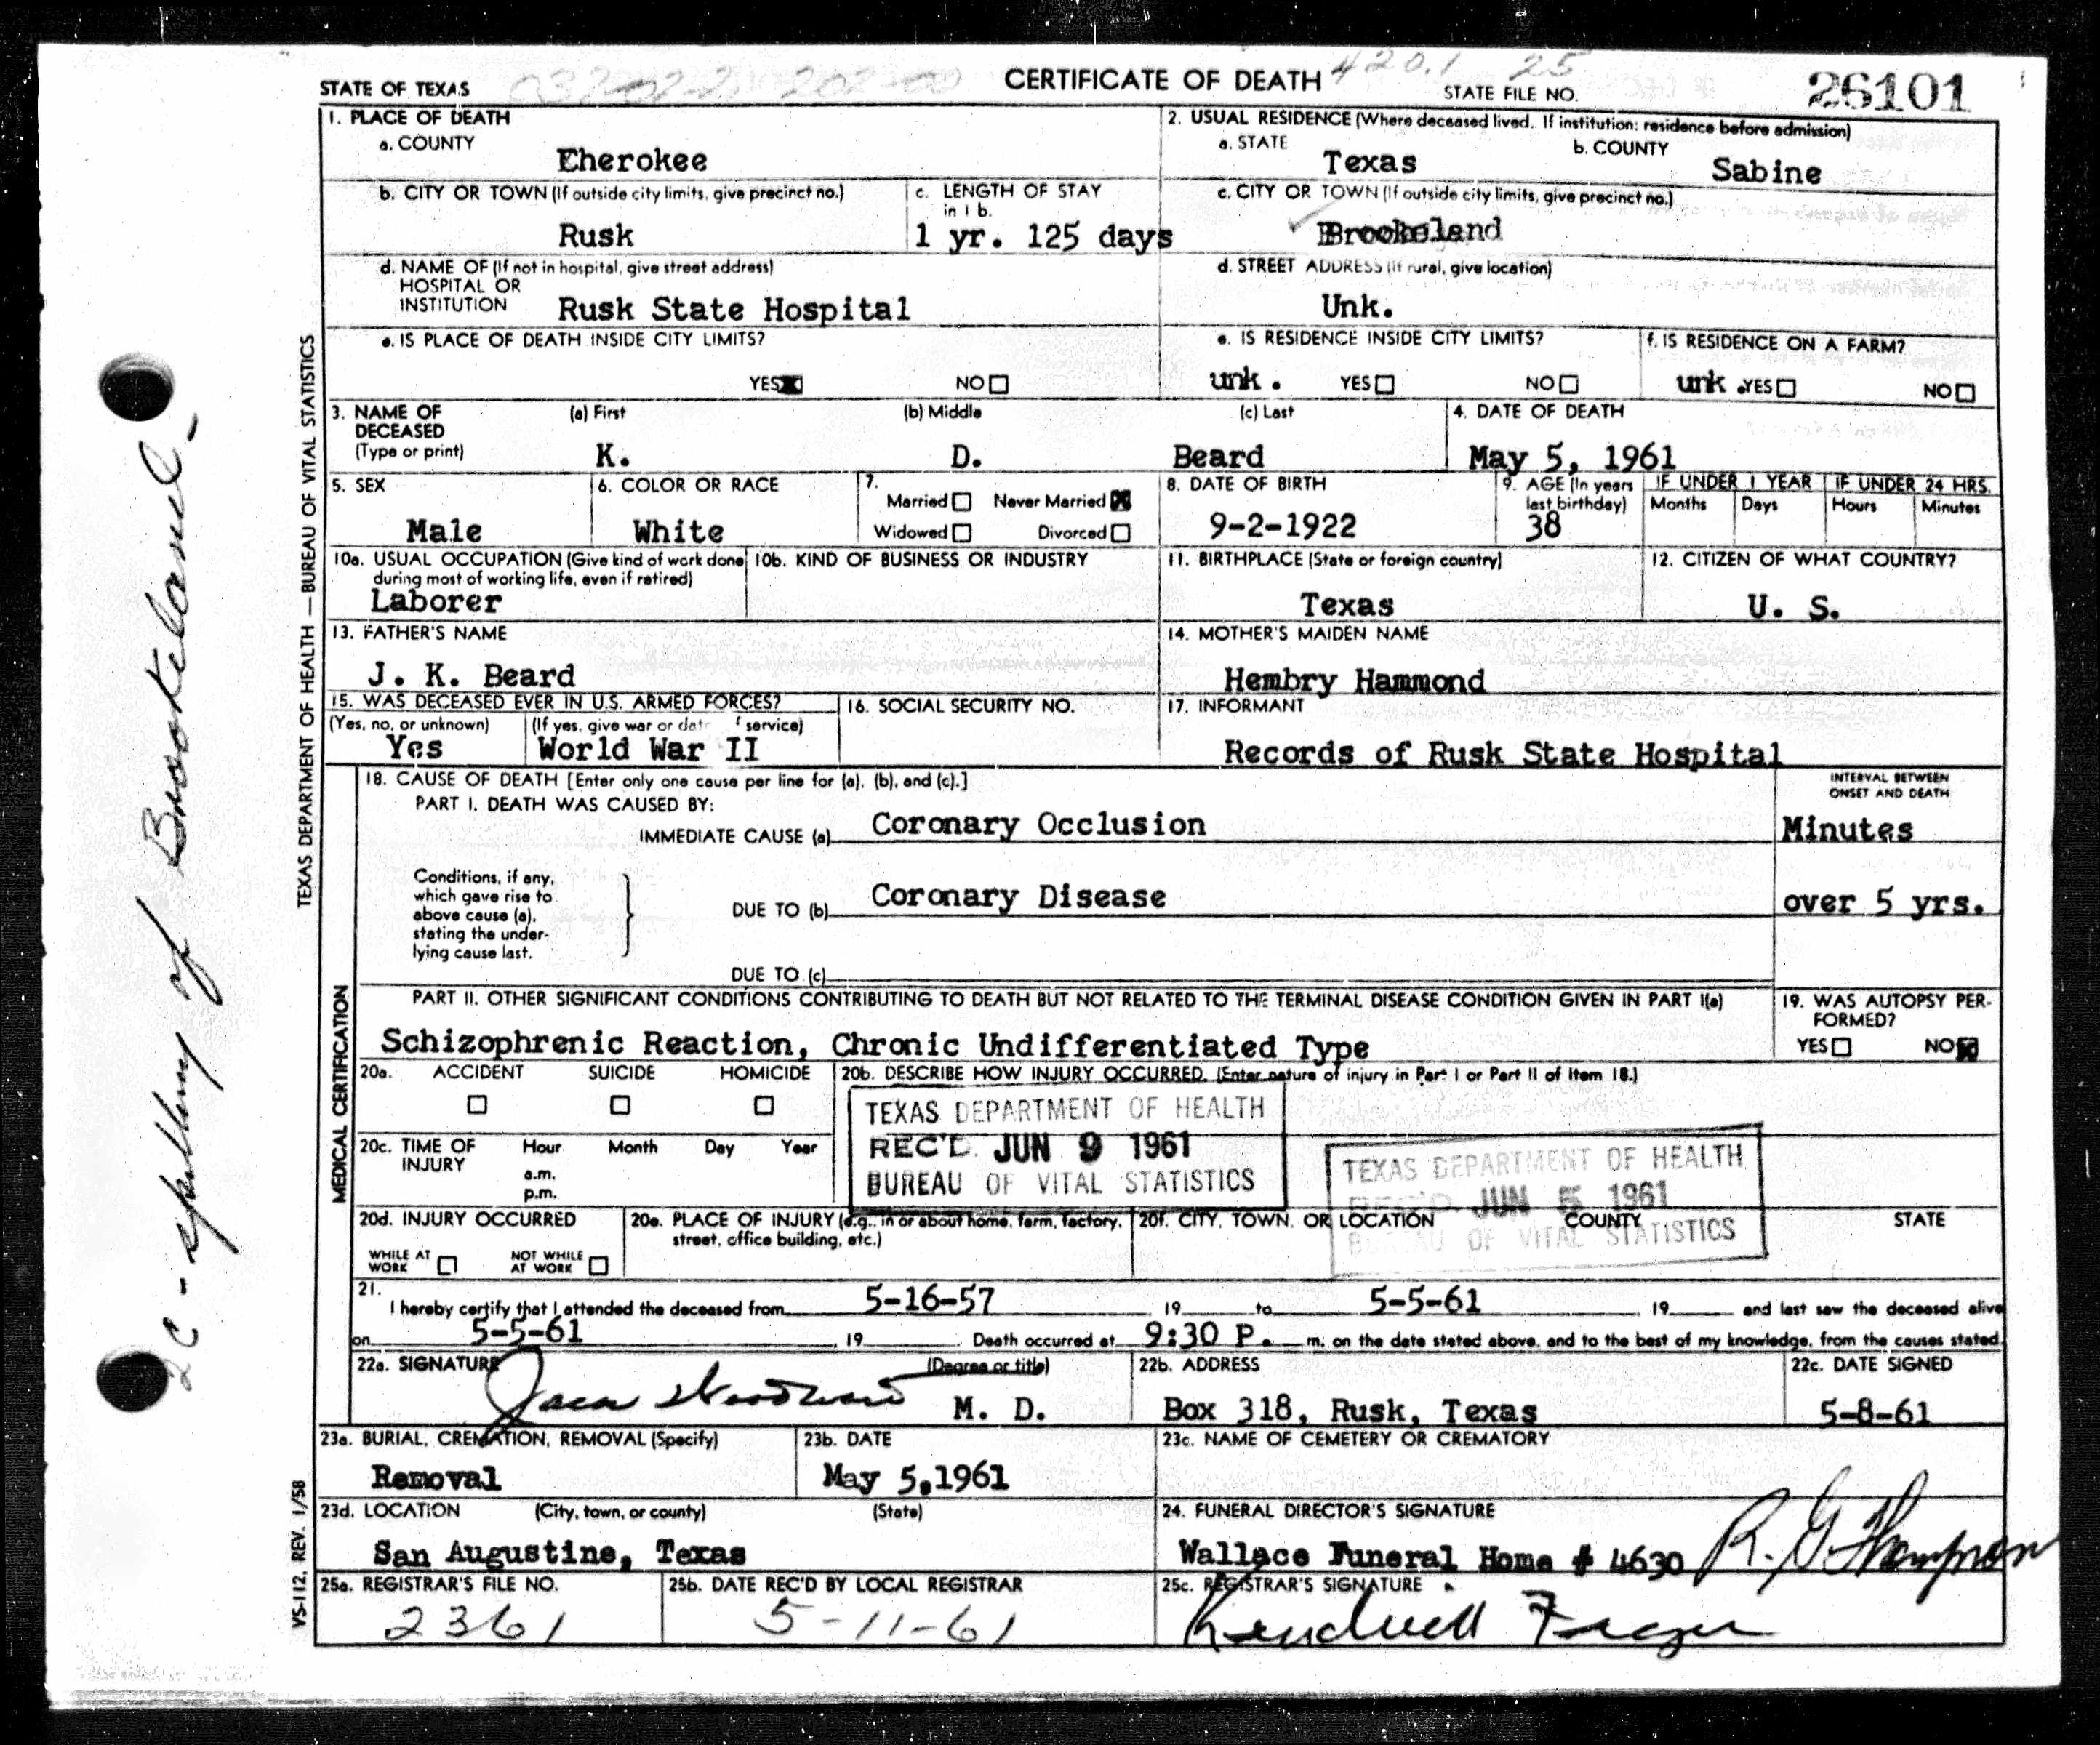 STATE OF TEXAS 032-02-2 202-00 CERTIFICATE OF DEATH 420.1 25 STATE FILE NO. 26101
1. PLACE OF DEATH
a. COUNTY
Cherokee
2. USUAL RESIDENCE (Where deceased lived. If institution: residence before admission)
a. STATE
Texas
b. COUNTY
Sabine
b. CITY OR TOWN (If outside city limits, give precinct no.)
Rusk
c. LENGTH OF STAY
in 1 b.
1 yr. 125 days
c. CITY OR TOWN (If outside city limits, give precinct no.)
Brookeland
d. NAME OF (If not in hospital, give street address)
HOSPITAL OR
INSTITUTION Rusk State Hospital
d. STREET ADDRESS (If rural, give location)
Unk.
e. IS PLACE OF DEATH INSIDE CITY LIMITS?
YES NO
e. IS RESIDENCE INSIDE CITY LIMITS?
unk. YES NO
f. IS RESIDENCE ON A FARM?
unk. YES NO
3. NAME OF
DECEASED
(Type or print)
(a) First
K.
(b) Middle
D.
(c) Last
Beard
4. DATE OF DEATH
May 5, 1961
5. SEX
Male
6. COLOR OR RACE
White
7.
Married Never Married
Widowed Divorced
8. DATE OF BIRTH
9-2-1922
9. AGE (In years
last birthday)
38
IF UNDER 1 YEAR
Months Days
IF UNDER 24 HRS.
Hours Minutes
10a. USUAL OCCUPATION (Give kind of work done
during most of working life, even if retired)
Laborer
10b. KIND OF BUSINESS OR INDUSTRY
11. BIRTHPLACE (State or foreign country)
Texas
12. CITIZEN OF WHAT COUNTRY?
U. S.
13. FATHER'S NAME
J. K. Beard
14. MOTHER'S MAIDEN NAME
Hembry Hammond
15. WAS DECEASED EVER IN U.S. ARMED FORCES?
(Yes, no, or unknown) (If yes, give war or dat f service)
Yes World War II
16. SOCIAL SECURITY NO.
17. INFORMANT
Records of Rusk State Hospital
18. CAUSE OF DEATH [Enter only one cause per line for (a), (b), and (c).]
PART I. DEATH WAS CAUSED BY:
INTERVAL BETWEEN
ONSET AND DEATH
IMMEDIATE CAUSE (a) Coronary Occlusion Minutes
Conditions, if any,
which gave rise to
above cause (a),
stating the under-
lying cause last.
DUE TO (b) Coronary Disease over 5 yrs.
DUE TO (c)
PART II. OTHER SIGNIFICANT CONDITIONS CONTRIBUTING TO DEATH BUT NOT RELATED TO THE TERMINAL DISEASE CONDITION GIVEN IN PART I(a)
Schizophrenic Reaction, Chronic Undifferentiated Type
19. WAS AUTOPSY PER-
FORMED?
YES NO
20a. ACCIDENT SUICIDE HOMICIDE
20b. DESCRIBE HOW INJURY OCCURRED. (Enter nature of injury in Part I or Part II of Item 18.)
TEXAS DEPARTMENT OF HEALTH
REC'D. JUN 9 1961
BUREAU OF VITAL STATISTICS
TEXAS DEPARTMENT OF HEALTH
REC'D JUN 5 1961
BUREAU OF VITAL STATISTICS
20c. TIME OF
INJURY
Hour Month Day Year
a.m.
p.m.
20d. INJURY OCCURRED
WHILE AT
WORK
NOT WHILE
AT WORK
20e. PLACE OF INJURY (e.g., in or about home, farm, factory,
street, office building, etc.)
20f. CITY, TOWN, OR LOCATION COUNTY STATE
21.
I hereby certify that I attended the deceased from 5-16-57 19 to 5-5-61 19 and last saw the deceased alive
on 5-5-61 19 . Death occurred at 9:30 P. m. on the date stated above, and to the best of my knowledge, from the causes stated.
22a. SIGNATURE (Degree or title)
Jack Woodward M. D.
22b. ADDRESS
Box 318, Rusk, Texas
22c. DATE SIGNED
5-8-61
23a. BURIAL, CREMATION, REMOVAL (Specify)
Removal
23b. DATE
May 5, 1961
23c. NAME OF CEMETERY OR CREMATORY
23d. LOCATION (City, town, or county) (State)
San Augustine, Texas
24. FUNERAL DIRECTOR'S SIGNATURE
Wallace Funeral Home # 4630 R. G. Thompson
25a. REGISTRAR'S FILE NO.
2361
25b. DATE REC'D BY LOCAL REGISTRAR
5-11-61
25c. REGISTRAR'S SIGNATURE
TEXAS DEPARTMENT OF HEALTH — BUREAU OF VITAL STATISTICS
MEDICAL CERTIFICATION
VS-112, REV. 1/58
2C - spelling of Brookeland -